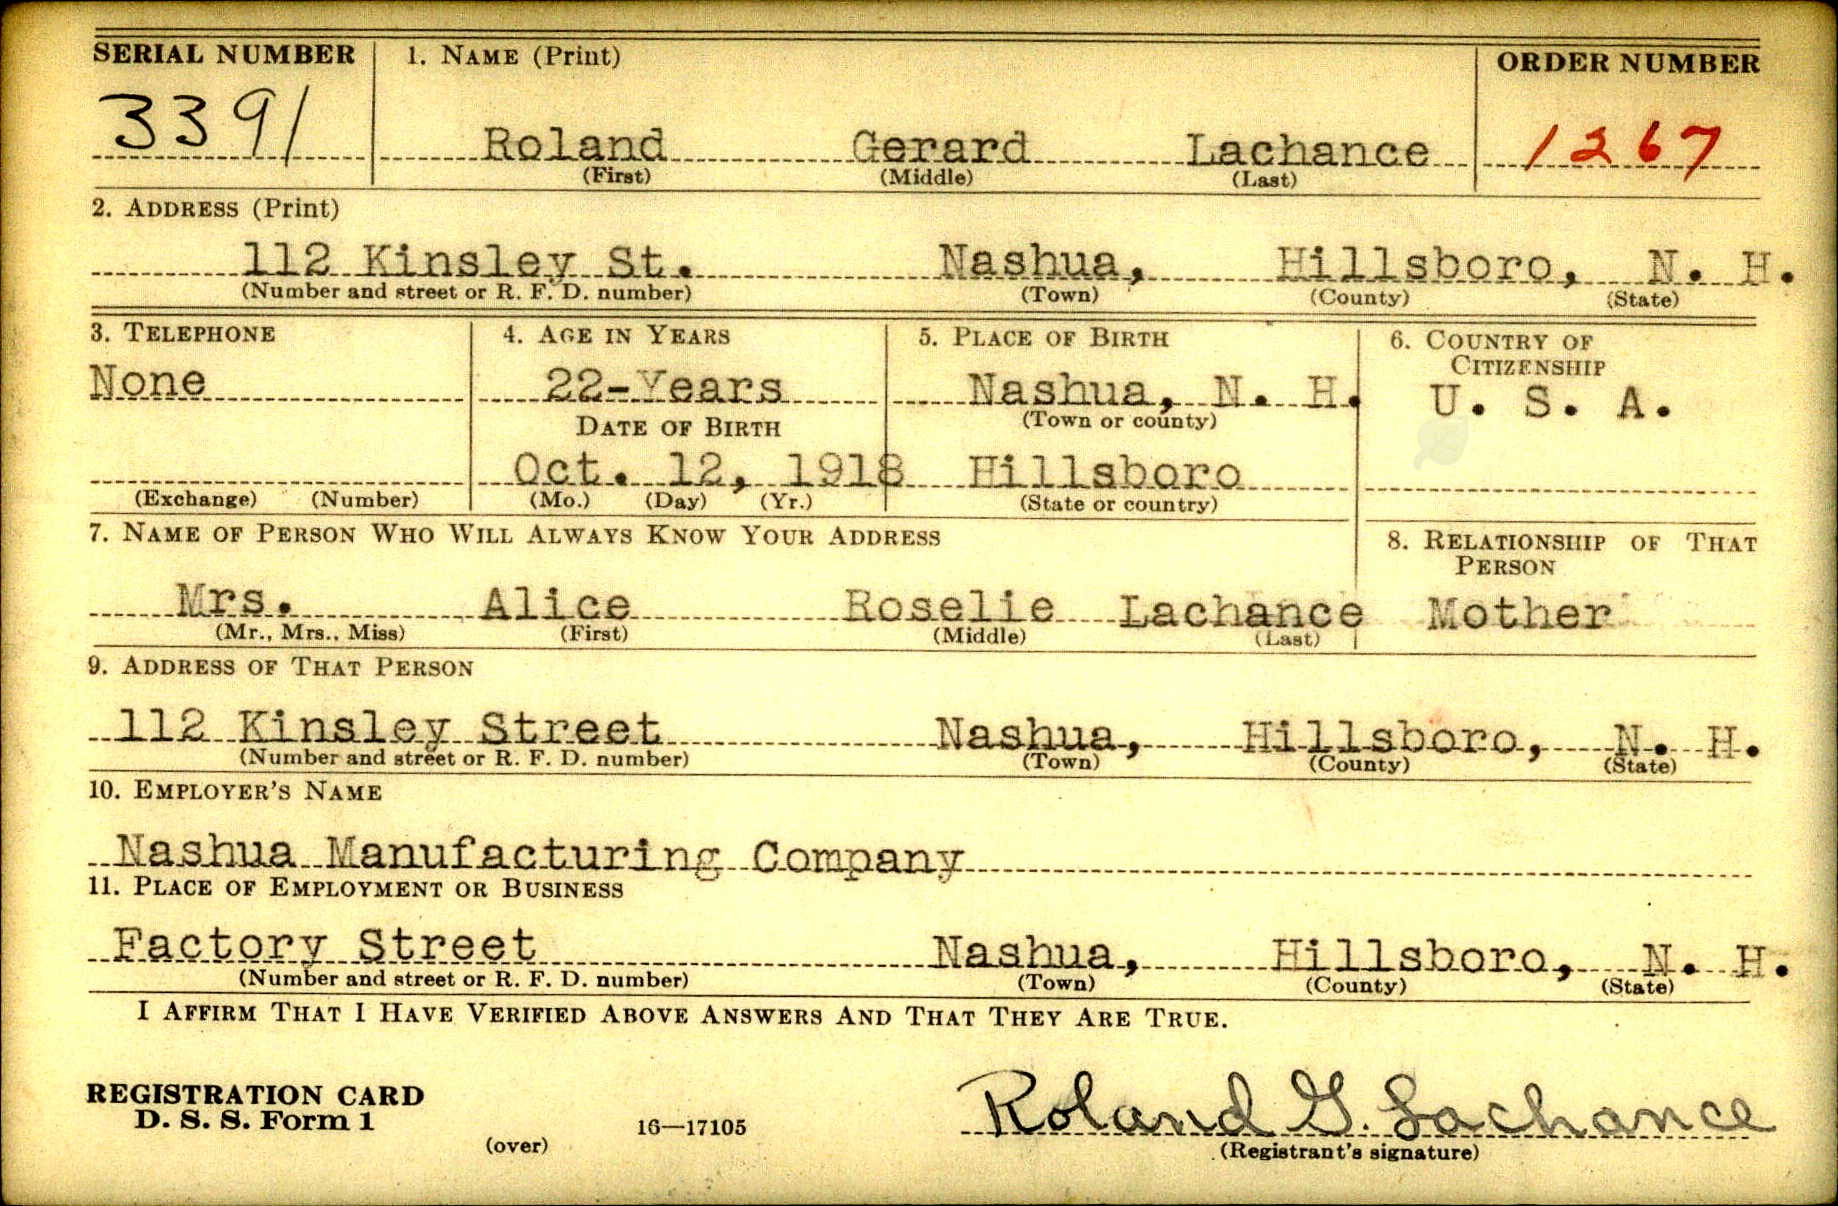 SERIAL NUMBER 1. NAME (Print) ORDER NUMBER
3391 Roland Gerard Lachance 1267
(First) (Middle) (Last)
2. ADDRESS (Print)
112 Kinsley St. Nashua, Hillsboro, N. H.
(Number and street or R. F. D. number) (Town) (County) (State)
3. TELEPHONE 4. AGE IN YEARS 5. PLACE OF BIRTH 6. COUNTRY OF
CITIZENSHIP
None 22-Years Nashua, N. H. U. S. A.
DATE OF BIRTH (Town or county)
Oct. 12, 1918 Hillsboro
(Exchange) (Number) (Mo.) (Day) (Yr.) (State or country)
7. NAME OF PERSON WHO WILL ALWAYS KNOW YOUR ADDRESS 8. RELATIONSHIP OF THAT
PERSON
Mrs. Alice Roselie Lachance Mother
(Mr., Mrs., Miss) (First) (Middle) (Last)
9. ADDRESS OF THAT PERSON
112 Kinsley Street Nashua, Hillsboro, N. H.
(Number and street or R. F. D. number) (Town) (County) (State)
10. EMPLOYER'S NAME
Nashua Manufacturing Company
11. PLACE OF EMPLOYMENT OR BUSINESS
Factory Street Nashua, Hillsboro, N. H.
(Number and street or R. F. D. number) (Town) (County) (State)
I AFFIRM THAT I HAVE VERIFIED ABOVE ANSWERS AND THAT THEY ARE TRUE.
REGISTRATION CARD
D. S. S. Form 1 16—17105 Roland G. Lachance
(over) (Registrant's signature)